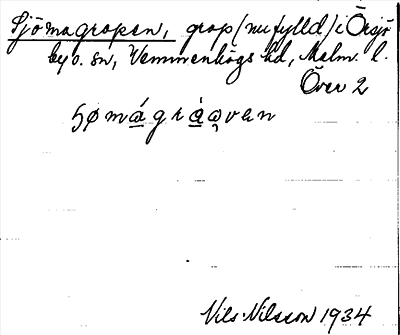 Sjömagropen, grop (nu fylld) i Örsjö
by o. sn, Vemmenhögs hd, Malm. l.
Över 2
ɧømágràạven
Nils Nilsson 1934